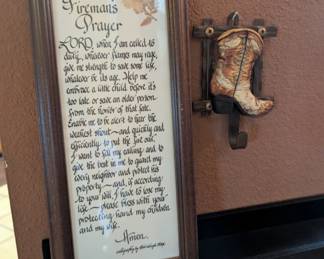 Fireman's
Prayer
LORD, when I am called to
duty, whatever flames may rage,
give me strength to save some life,
whatever be its age. Help me
embrace a little child before it's
too late or save an older person
from the horror of that fate.
Enable me to be alert to hear the
weakest shout~and quickly and
efficiently to put the fire out.
I want to fill my calling and to
give the best in me to guard my
every neighbor and protect his
property~and, if according
to you will I have to lose my
life~please bless with your
protecting hand my children
and my wife.
Amen.
calligraphy by